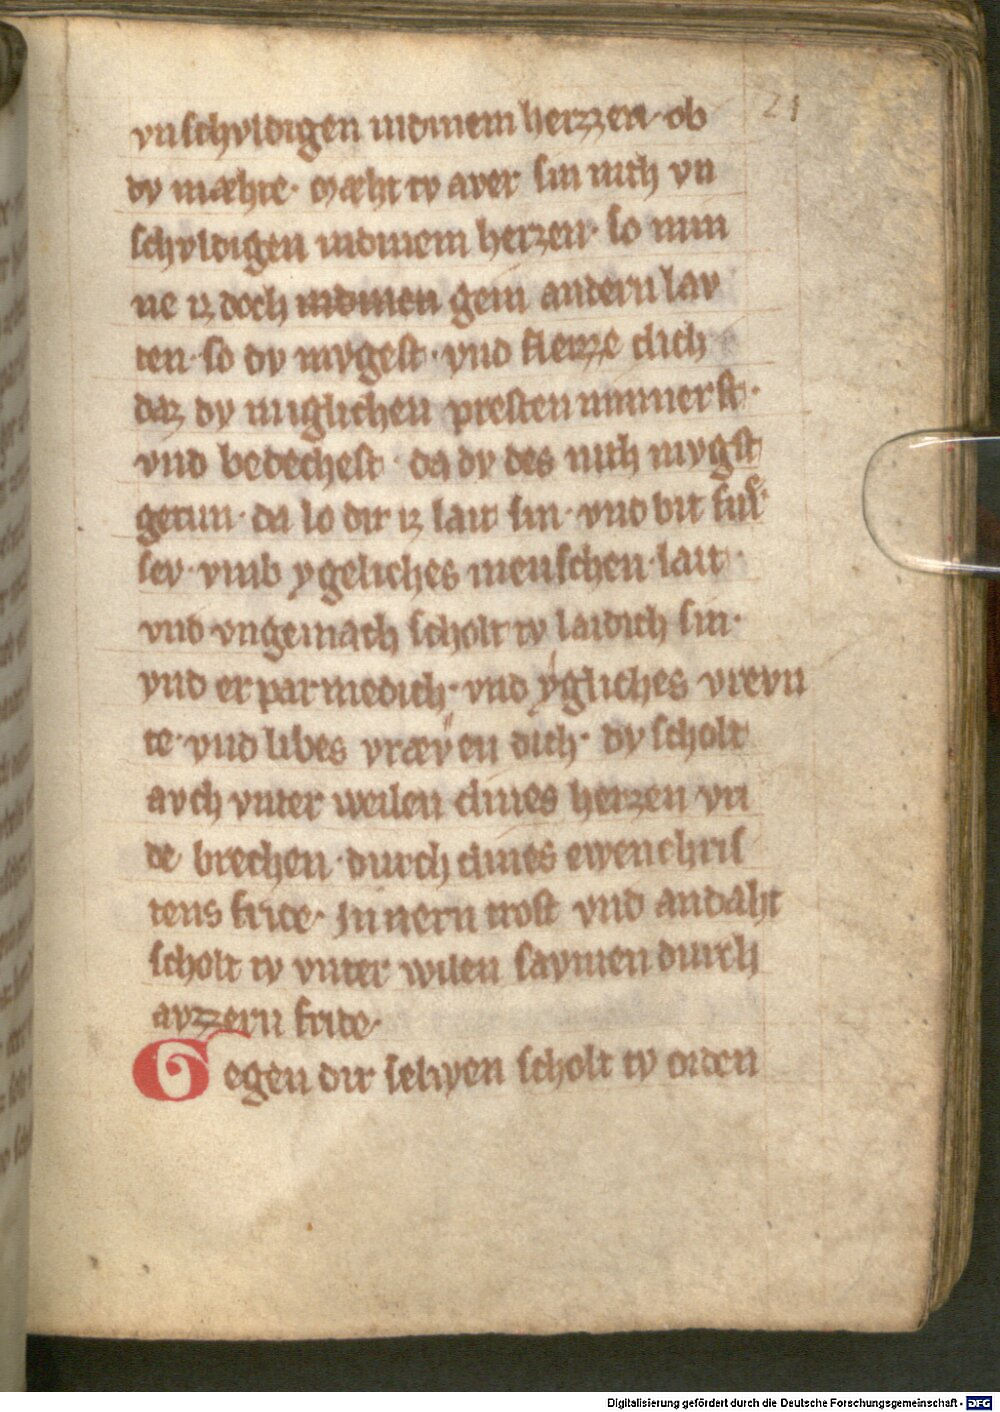 21
vnschvldigen indinem herzzen· ob
dv mæhte· mæht tv aver sin nith vn
schvldigen indinem herzen· so nim
ne iz doch indinen gein andern lav
ten· so dv mvgest· vnd flerzze dich
daz dv iniglichen presten minnerst·
vnd bedechest· da dv des nith mvgst
getun· da lo dir iz lait sin· vnd bit sus
sev· vmb ygeliches menschen lait·
vnd vngemach scholt tv laidich sin·
vnd erparmedich· vnd ygliches vrevn
te· vnd libes vræyen dich· dv scholt
avch vnter weilen dines herzen vri
de brechen· durch dines ewenchris
tens fride· Innern trost vnd andaht
scholt tv vnter wilen savmen durch
avzzern fride·
Gegen dir selwen scholt tv orden
Digitalisierung gefördert durch die Deutsche Forschungsgemeinschaft - DFG